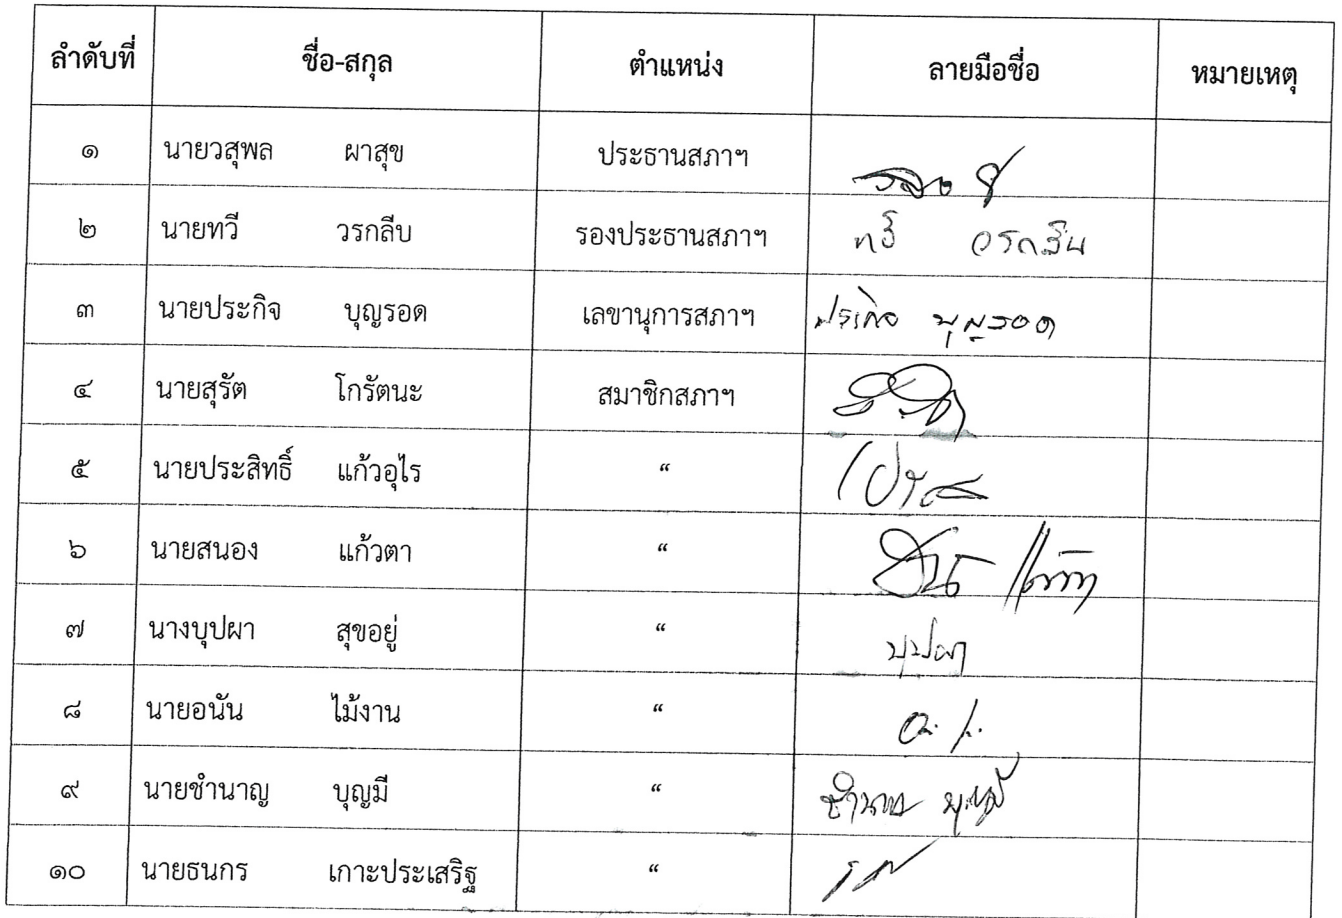 ลำดับที่ ชื่อ-สกุล ตำแหน่ง ลายมือชื่อ หมายเหตุ
๑ นายวสุพล ผาสุข ประธานสภาฯ
๒ นายทวี วรกลีบ รองประธานสภาฯ ทวี วรกลีบ
๓ นายประกิจ บุญรอด เลขานุการสภาฯ ประกิจ บุญรอด
๔ นายสุรัต โกรัตนะ สมาชิกสภาฯ
๕ นายประสิทธิ์ แก้วอุไร “
๖ นายสนอง แก้วตา “
๗ นางบุปผา สุขอยู่ “ บุปผา
๘ นายอนัน ไม้งาน “
๙ นายชำนาญ บุญมี “ ชำนาญ บุญมี
๑๐ นายธนกร เกาะประเสริฐ “